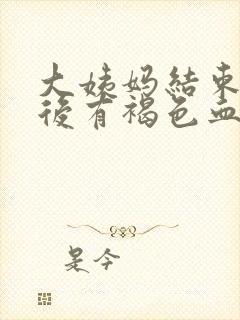 大姨妈結束
後有褐色血
是今